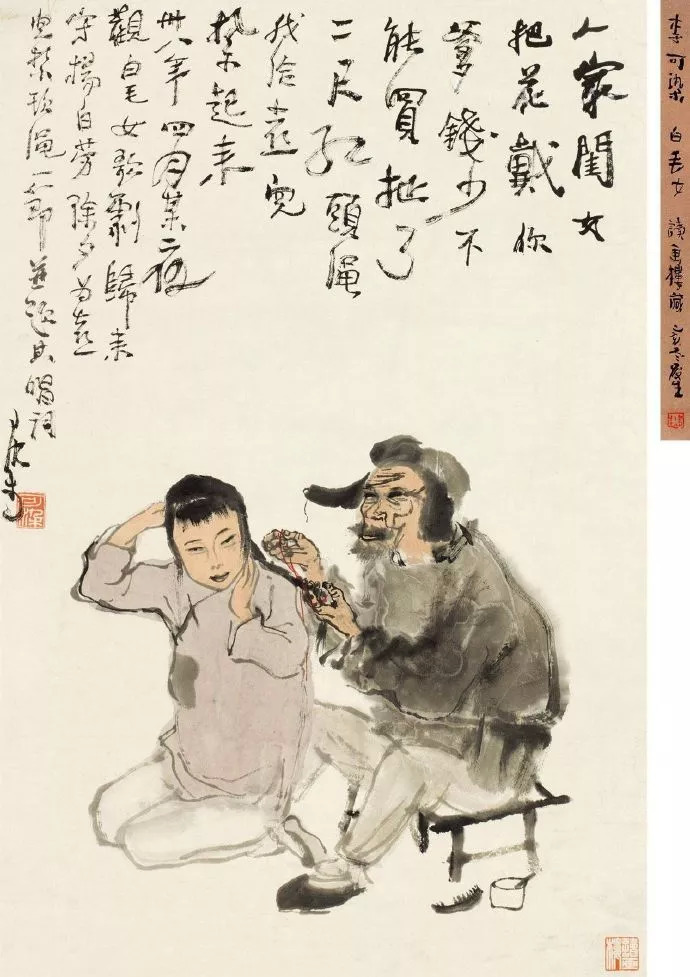 人家閨女
把花戴你
爹錢少不
能買扯了
二尺红頭绳
我给喜兒
紮起来
卅八年四月某二夜
觀白毛女歌劇歸来
寫楊白劳除夕为喜
兒紮頭绳一節並題其唱詞
可染
可染
李可染 白毛女 讀画樓藏